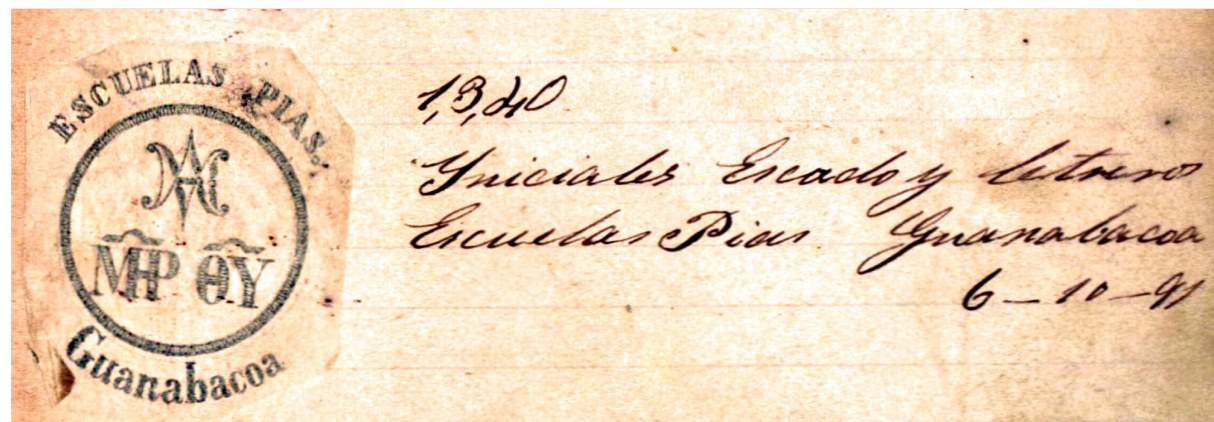 ESCUELAS PIAS.
M̃P ΘỸ
Guanabacoa
1,3,40
Iniciales Escudo y letreros
Escuelas Pias Guanabacoa
6-10-91